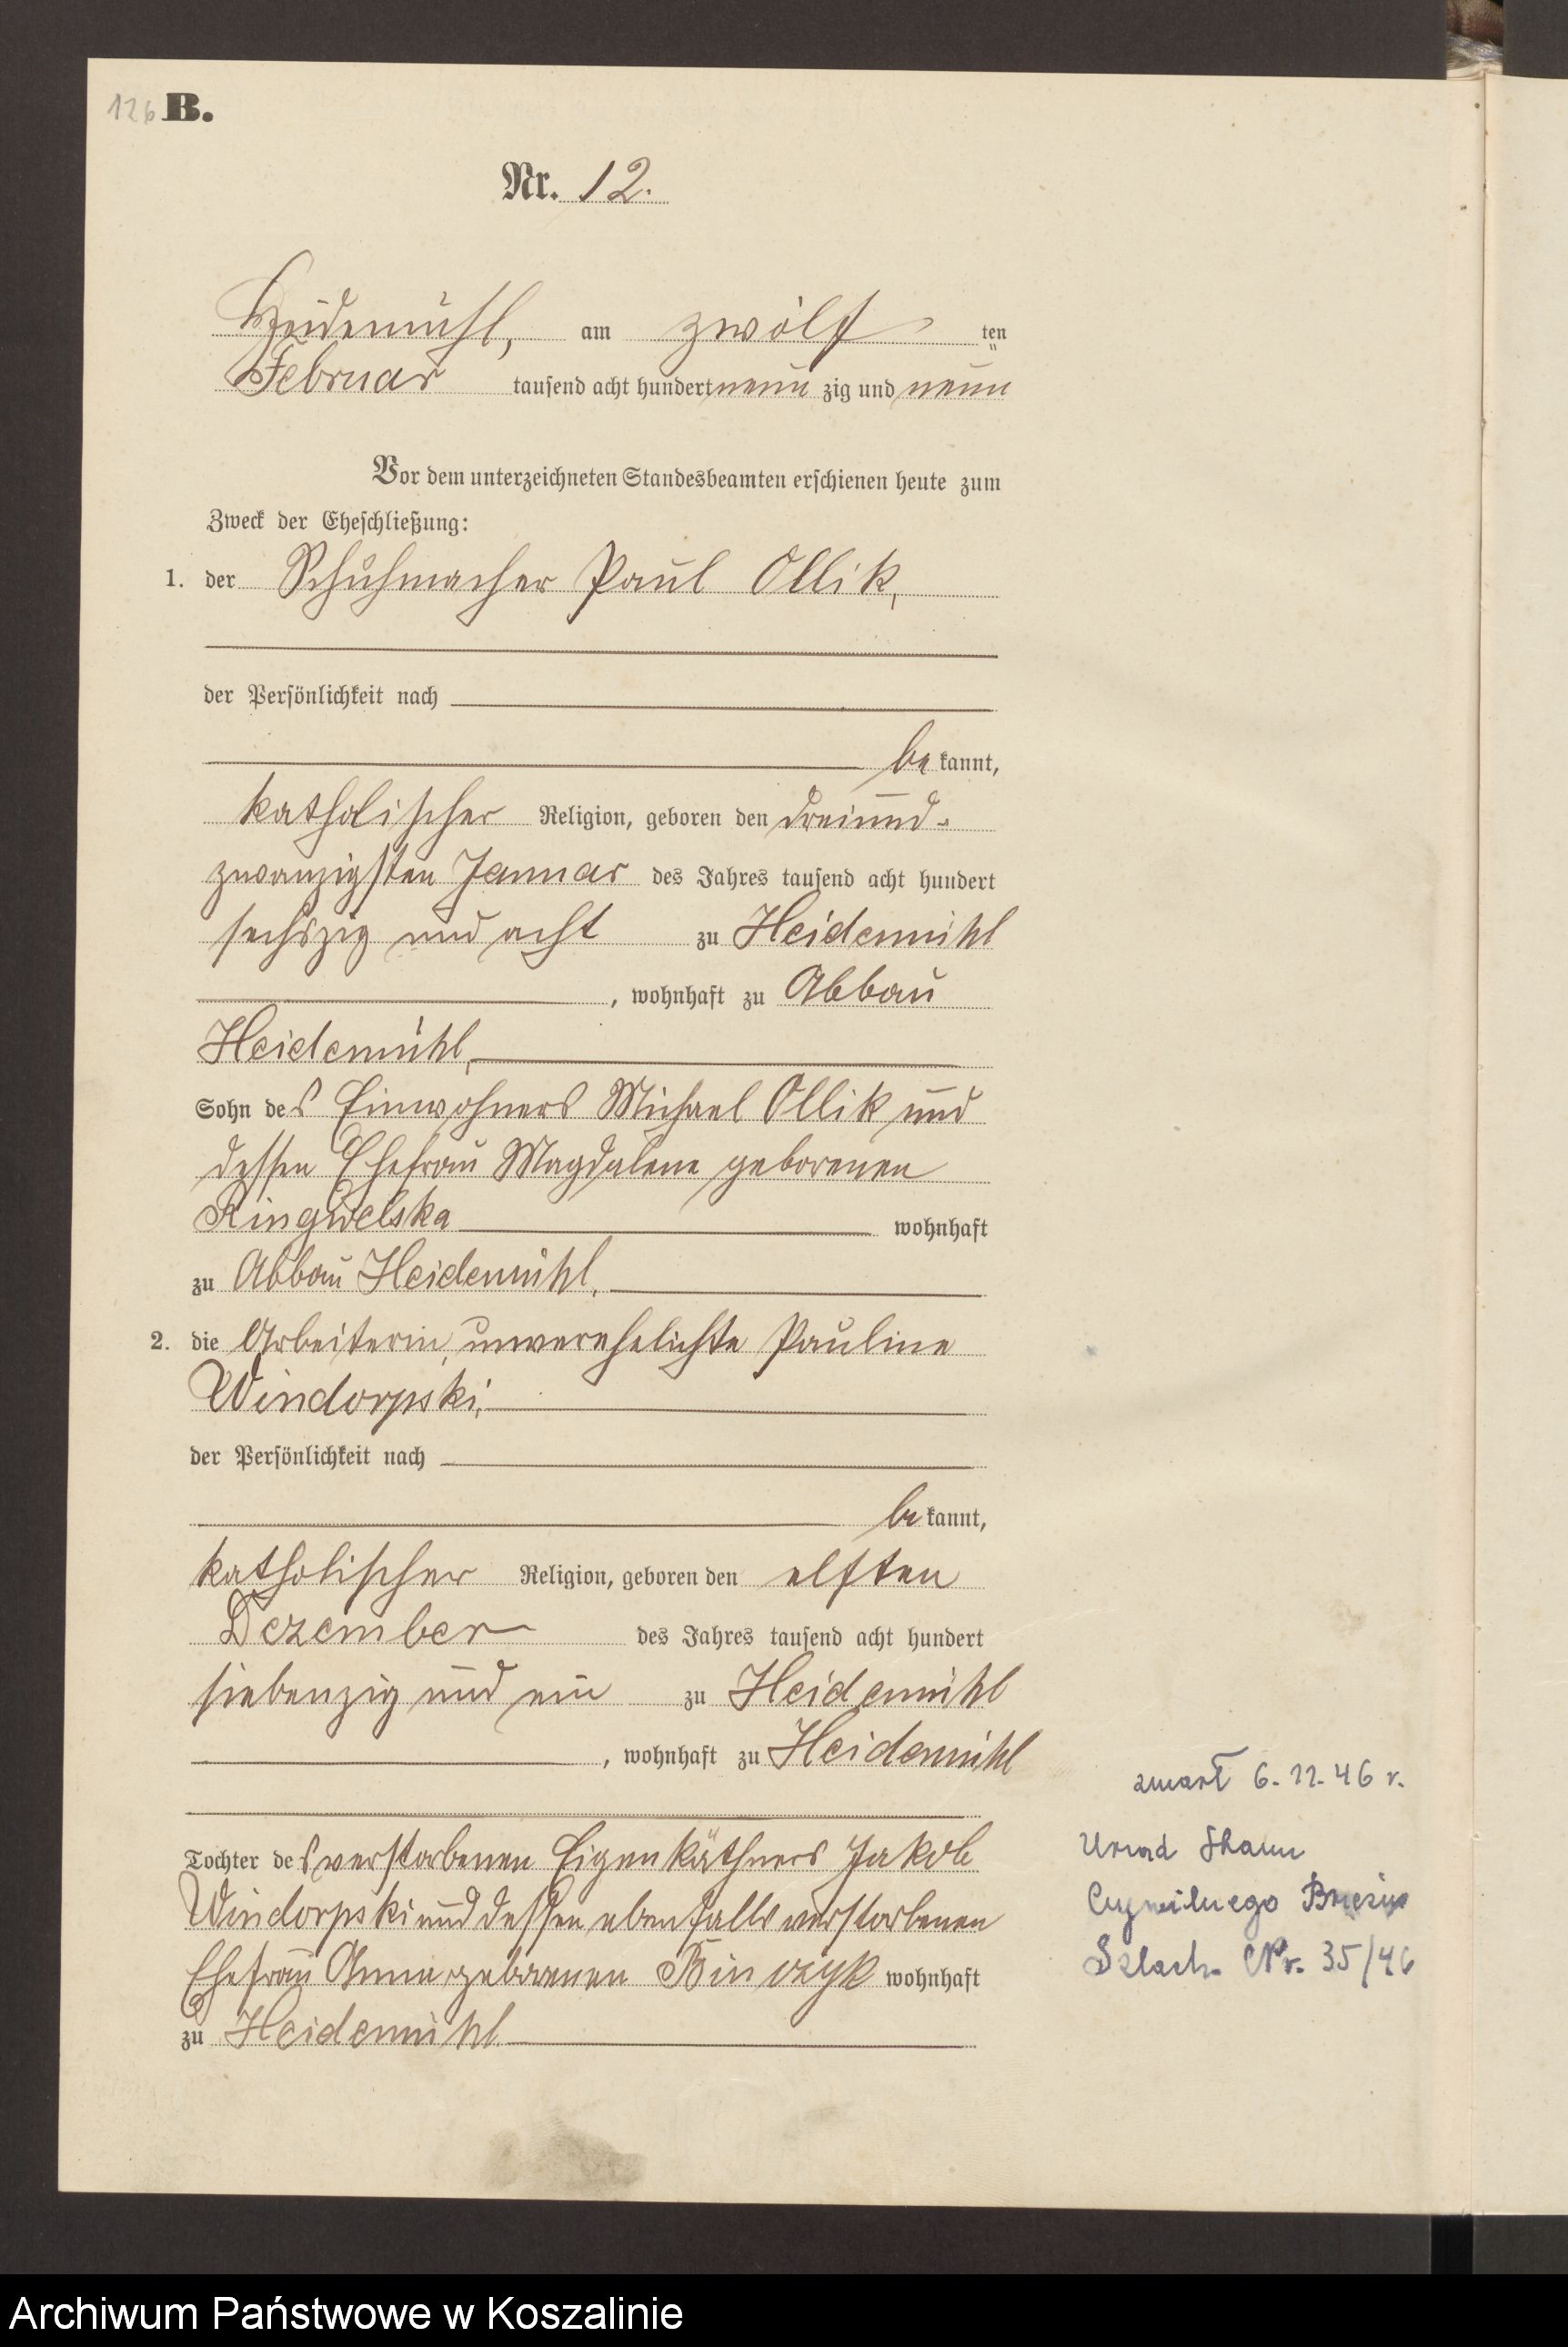 126 B.
Nr. 12.
Heidemühl, am zwölf ten
Februar tausend acht hundert neun zig und neun
Vor dem unterzeichneten Standesbeamten erschienen heute zum
Zweck der Eheschließung:
1. der Schuhmacher Paul Ollik,
der Persönlichkeit nach
be kannt,
katholischer Religion, geboren den dreiund-
zwanzigsten Januar des Jahres tausend acht hundert
sechszig und acht zu Heidemühl
, wohnhaft zu Abbau
Heidemühl,
Sohn des Einwohners Michael Ollik und
dessen Ehefrau Magdalene geborenen
Ringwelska wohnhaft
zu Abbau Heidemühl.
2. die Arbeiterin, unverehelichte Pauline
Windorpski,
der Persönlichkeit nach
be kannt,
katholischer Religion, geboren den elften
Dezember des Jahres tausend acht hundert
siebenzig und ein zu Heidemühl
, wohnhaft zu Heidemühl
Tochter des verstorbenen Eigenkäthners Jakob
Windorpski und dessen ebenfalls verstorbenen
Ehefrau Anna geborenen Binczyk wohnhaft
zu Heidemühl.
zmarł 6. 11. 46 r.
Urząd Stanu
Cywilnego
Szlach. Nr. 35/46
Archiwum Państwowe w Koszalinie